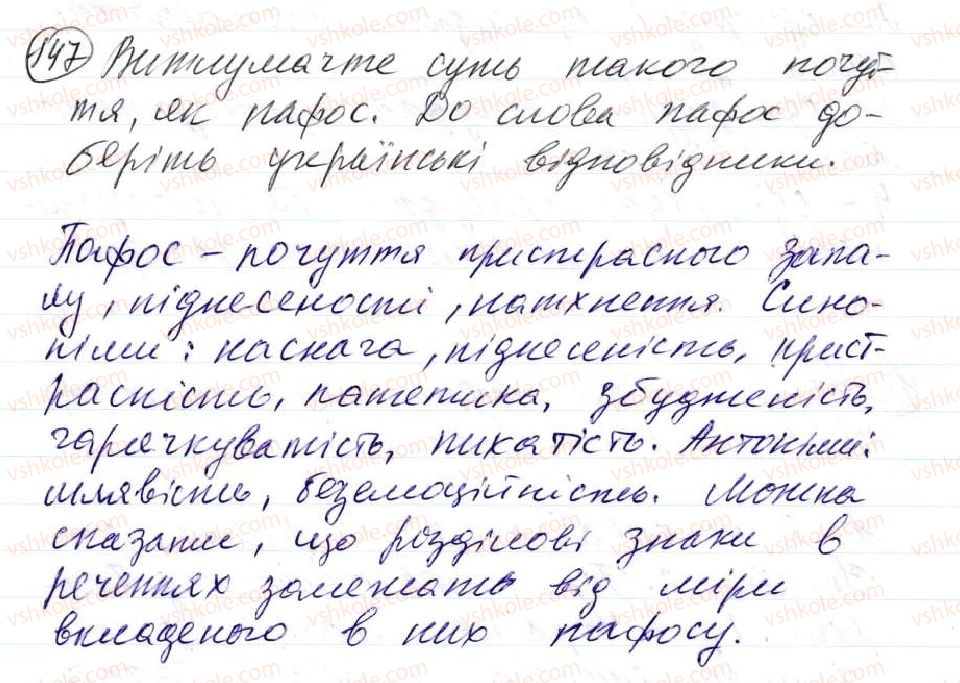 147 Витлумачте суть такого почут-
тя, як пафос. До слова пафос до-
беріть українські відповідники.
Пафос – почуття пристрасного запа-
лу, піднесеності, натхнення. Сино-
німи: наснага, піднесеність, прист-
расність, патетика, збудженість,
гарячкуватість, пихатість. Антоніми:
млявість, беземоційність. Можна
сказати, що розділові знаки в
реченнях залежать від міри
вкладеного в них пафосу.